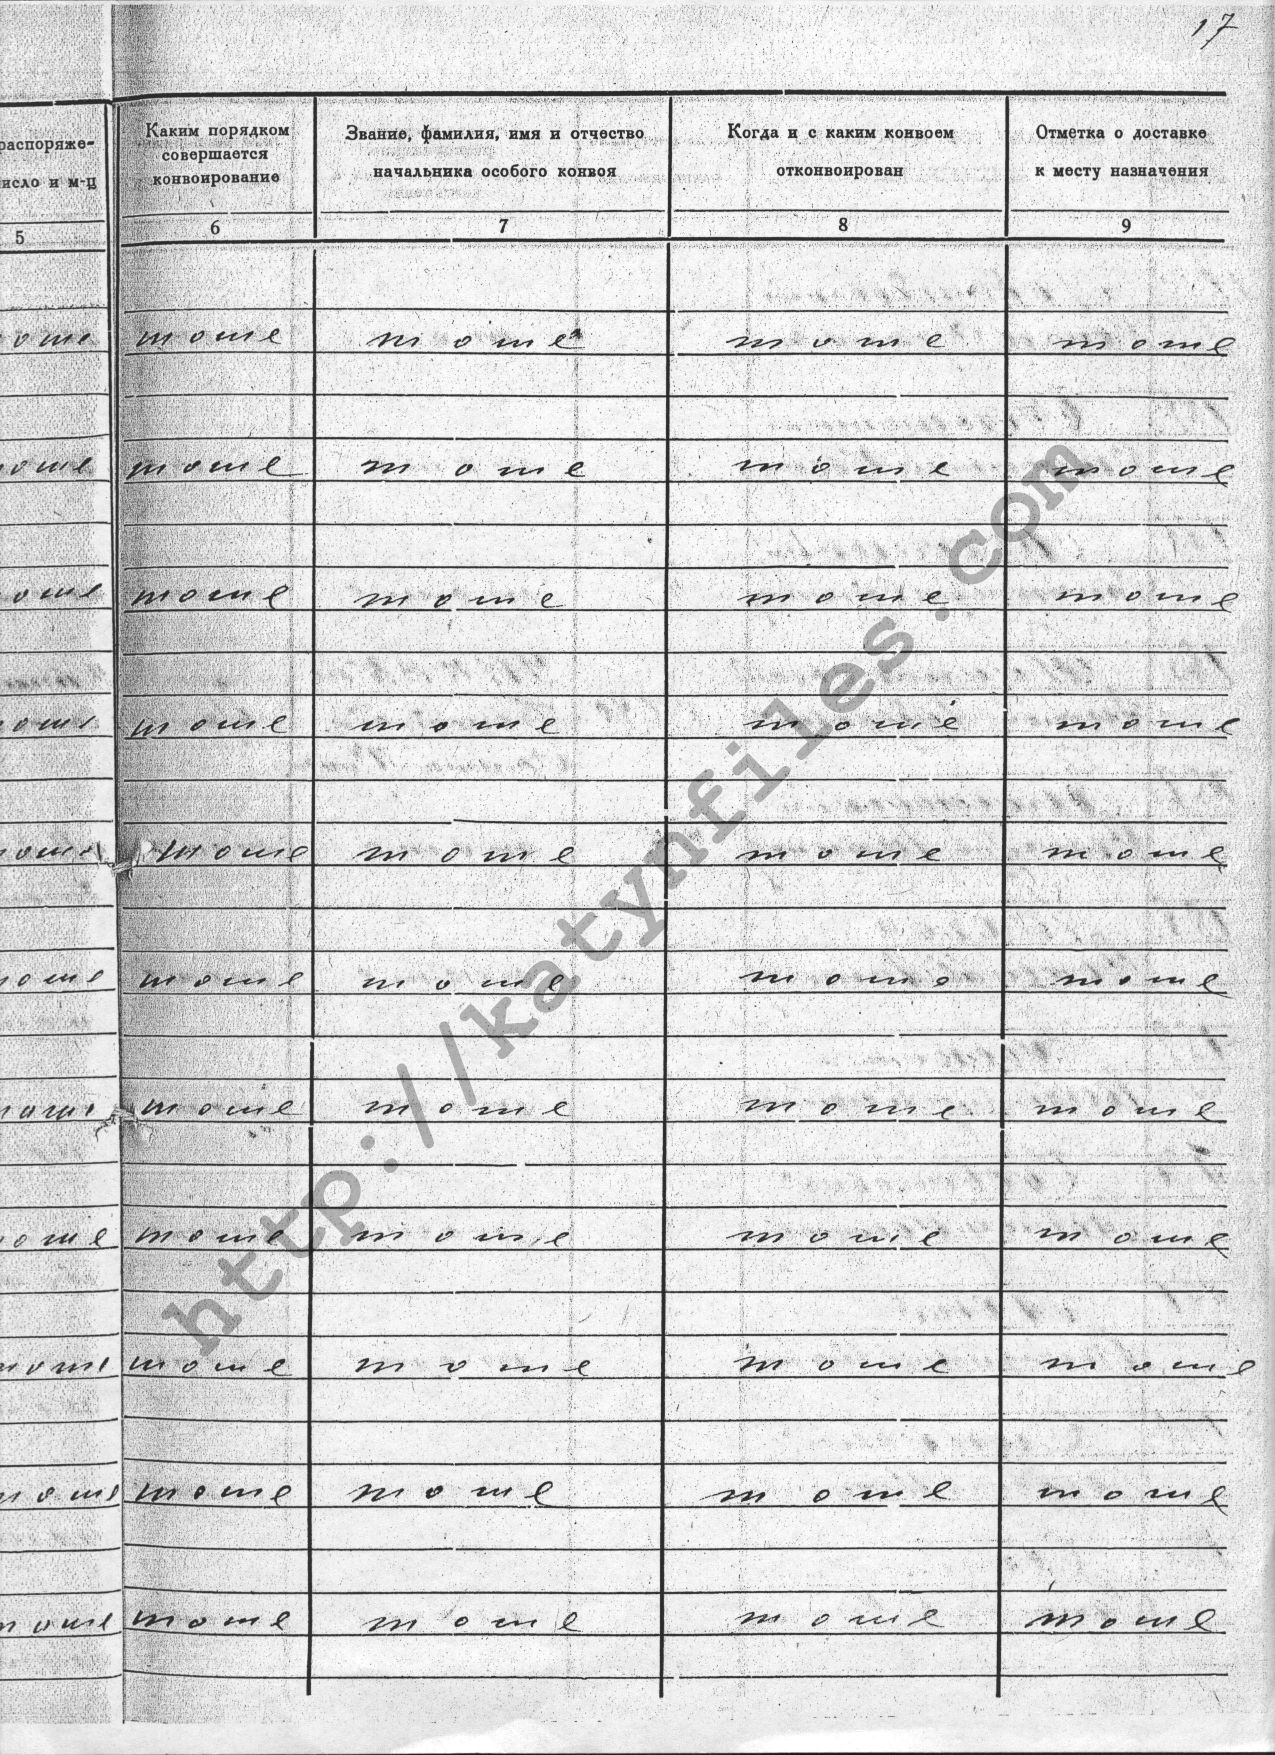 17
распоряже-
исло и м-ц
5
Каким порядком
совершается
конвоирование
6
Звание, фамилия, имя и отчество
начальника особого конвоя
7
Когда и с каким конвоем
отконвоирован
8
Отметка о доставке
к месту назначения
9
оже тоже тоже тоже тоже
оже тоже тоже тоже тоже
оже тоже тоже тоже тоже
тоже тоже тоже тоже тоже
тоже тоже тоже тоже тоже
тоже тоже тоже тоже тоже
тоже тоже тоже тоже тоже
тоже тоже тоже тоже тоже
тоже тоже тоже тоже тоже
тоже тоже тоже тоже тоже
тоже тоже тоже тоже тоже
http://katynfiles.com